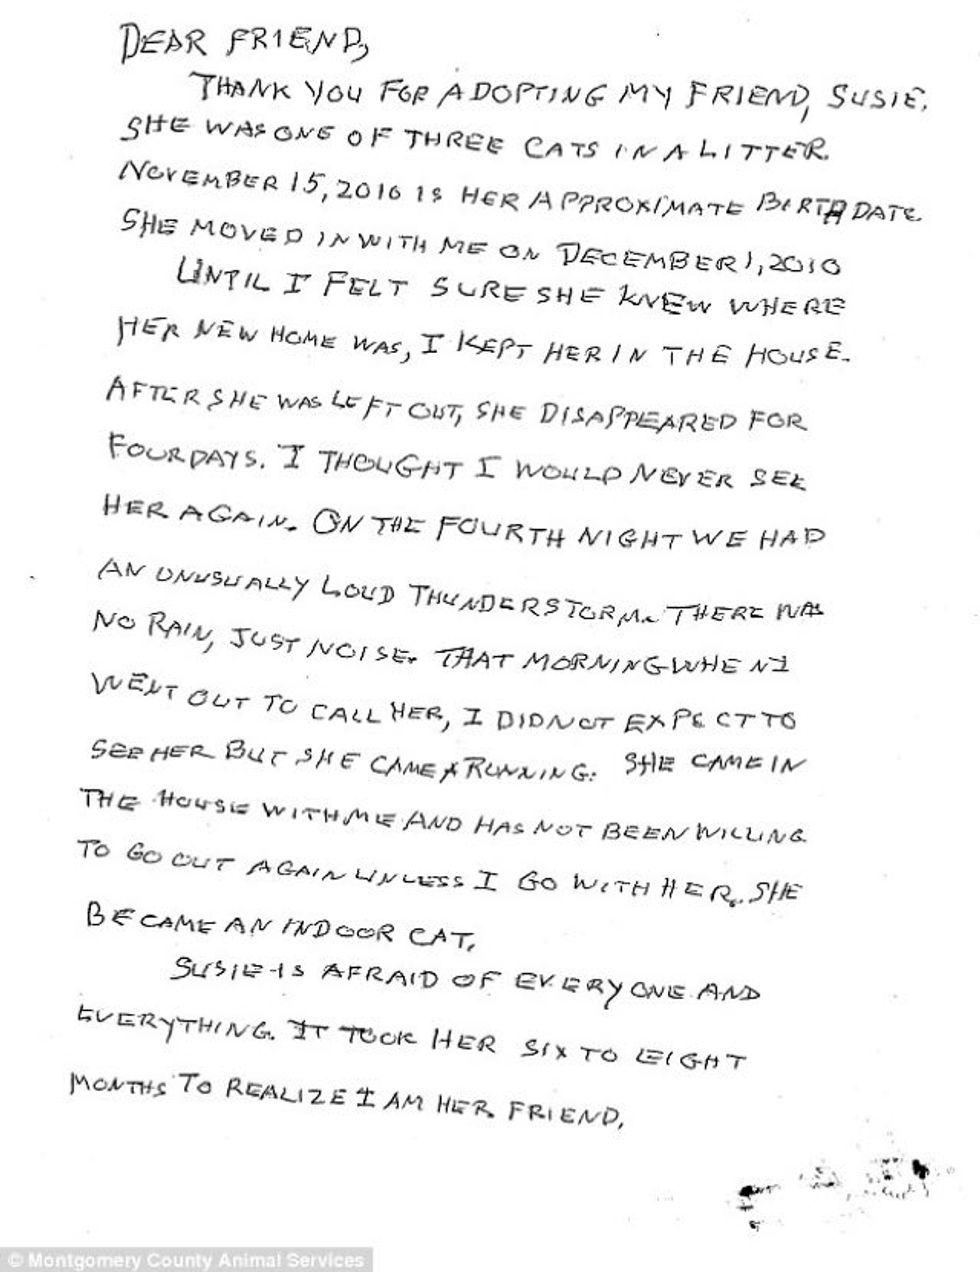 DEAR FRIEND,
THANK YOU FOR ADOPTING MY FRIEND, SUSIE.
SHE WAS ONE OF THREE CATS IN A LITTER.
NOVEMBER 15, 2010 IS HER APPROXIMATE BIRTH DATE
SHE MOVED IN WITH ME ON DECEMBER 1, 2010
UNTIL I FELT SURE SHE KNEW WHERE
HER NEW HOME WAS, I KEPT HER IN THE HOUSE.
AFTER SHE WAS LEFT OUT, SHE DISAPPEARED FOR
FOUR DAYS. I THOUGHT I WOULD NEVER SEE
HER AGAIN. ON THE FOURTH NIGHT WE HAD
AN UNUSUALLY LOUD THUNDERSTORM. THERE WAS
NO RAIN, JUST NOISE. THAT MORNING WHEN I
WENT OUT TO CALL HER, I DID NOT EXPECT TO
SEE HER BUT SHE CAME RUNNING. SHE CAME IN
THE HOUSE WITH ME AND HAS NOT BEEN WILLING
TO GO OUT AGAIN UNLESS I GO WITH HER. SHE
BECAME AN INDOOR CAT.
SUSIE IS AFRAID OF EVERYONE AND
EVERYTHING. IT TOOK HER SIX TO EIGHT
MONTHS TO REALIZE I AM HER FRIEND.
© Montgomery County Animal Services